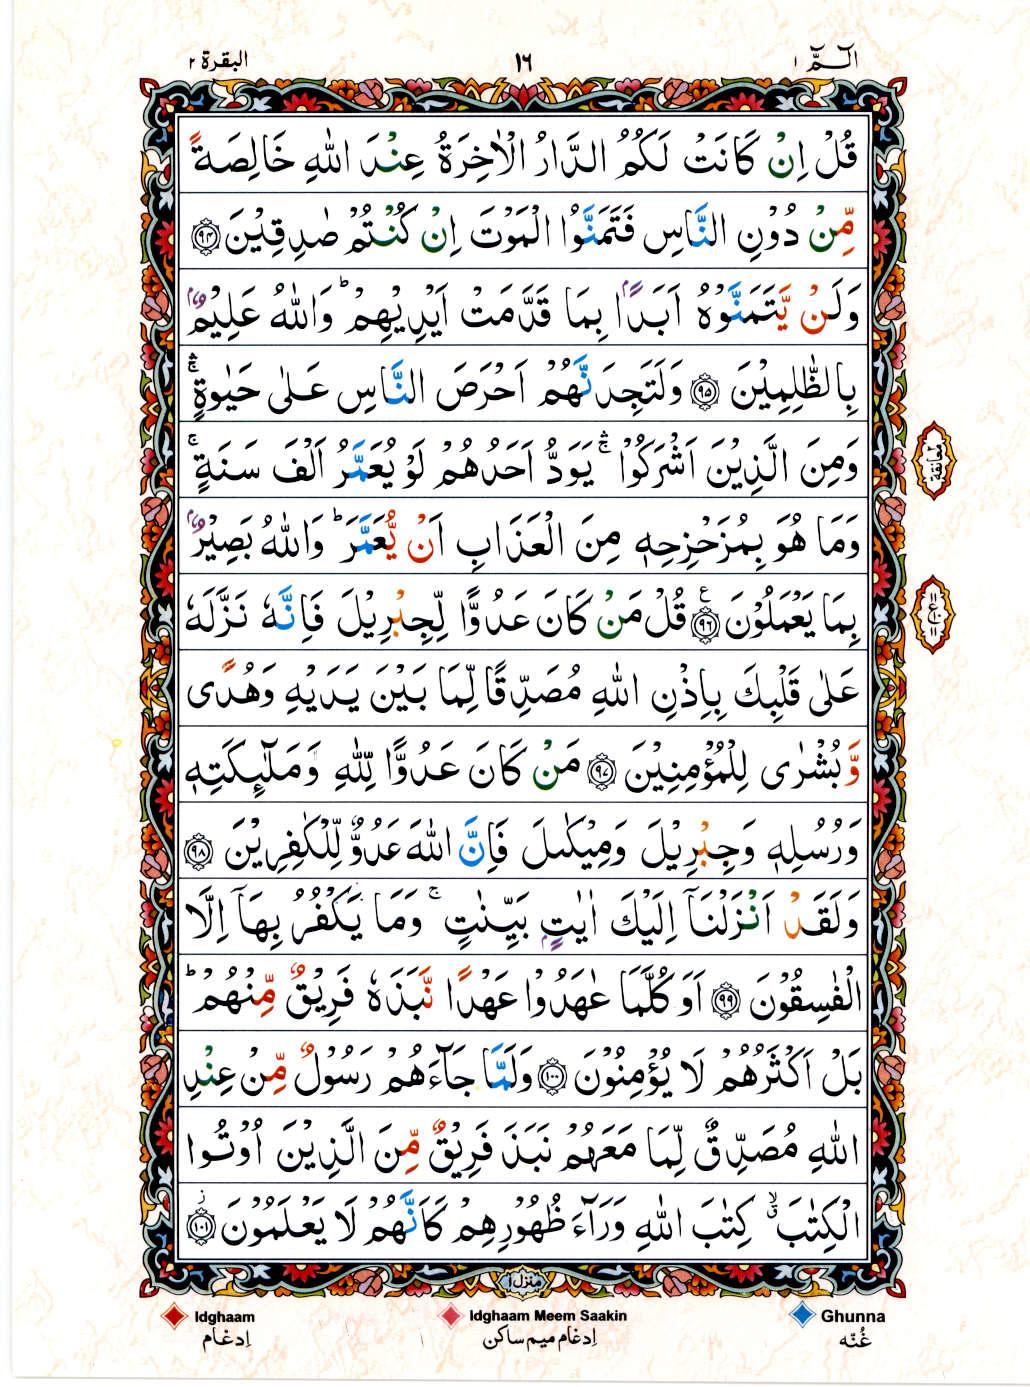 الٓـمّٓ ١
١٦
البقرة ٢
قُلْ اِنْ كَانَتْ لَكُمُ الدَّارُ الْاٰخِرَةُ عِنْدَ اللّٰهِ خَالِصَةً
مِّنْ دُوْنِ النَّاسِ فَتَمَنَّوُا الْمَوْتَ اِنْ كُنْتُمْ صٰدِقِيْنَ ﴿٩٤﴾
وَلَنْ يَّتَمَنَّوْهُ اَبَدًۢا بِمَا قَدَّمَتْ اَيْدِيْهِمْ ؕ وَاللّٰهُ عَلِيْمٌۢ
بِالظّٰلِمِيْنَ ﴿٩٥﴾ وَلَتَجِدَنَّهُمْ اَحْرَصَ النَّاسِ عَلٰى حَيٰوةٍ ۛۚ
وَمِنَ الَّذِيْنَ اَشْرَكُوْا ۛۚ يَوَدُّ اَحَدُهُمْ لَوْ يُعَمَّرُ اَلْفَ سَنَةٍ ۚ
وَمَا هُوَ بِمُزَحْزِحِهٖ مِنَ الْعَذَابِ اَنْ يُّعَمَّرَ ؕ وَاللّٰهُ بَصِيْرٌۢ
بِمَا يَعْمَلُوْنَ ﴿٩٦﴾ ع قُلْ مَنْ كَانَ عَدُوًّا لِّجِبْرِيْلَ فَاِنَّهٗ نَزَّلَهٗ
عَلٰى قَلْبِكَ بِاِذْنِ اللّٰهِ مُصَدِّقًا لِّمَا بَيْنَ يَدَيْهِ وَهُدًى
وَّبُشْرٰى لِلْمُؤْمِنِيْنَ ﴿٩٧﴾ مَنْ كَانَ عَدُوًّا لِّلّٰهِ وَمَلٰٓئِكَتِهٖ
وَرُسُلِهٖ وَجِبْرِيْلَ وَمِيْكٰىلَ فَاِنَّ اللّٰهَ عَدُوٌّ لِّلْكٰفِرِيْنَ ﴿٩٨﴾
وَلَقَدْ اَنْزَلْنَاۤ اِلَيْكَ اٰيٰتٍۭ بَيِّنٰتٍ ۚ وَمَا يَكْفُرُ بِهَاۤ اِلَّا
الْفٰسِقُوْنَ ﴿٩٩﴾ اَوَكُلَّمَا عٰهَدُوْا عَهْدًا نَّبَذَهٗ فَرِيْقٌ مِّنْهُمْ ؕ
بَلْ اَكْثَرُهُمْ لَا يُؤْمِنُوْنَ ﴿١٠٠﴾ وَلَمَّا جَآءَهُمْ رَسُوْلٌ مِّنْ عِنْدِ
اللّٰهِ مُصَدِّقٌ لِّمَا مَعَهُمْ نَبَذَ فَرِيْقٌ مِّنَ الَّذِيْنَ اُوْتُوا
الْكِتٰبَ ۙۗ كِتٰبَ اللّٰهِ وَرَآءَ ظُهُوْرِهِمْ كَاَنَّهُمْ لَا يَعْلَمُوْنَ ؗ ﴿١٠١﴾
معانقة
منزل ١
Idghaam
Idghaam Meem Saakin
Ghunna
اِدغام
اِدغام میم ساکن
غُنّه